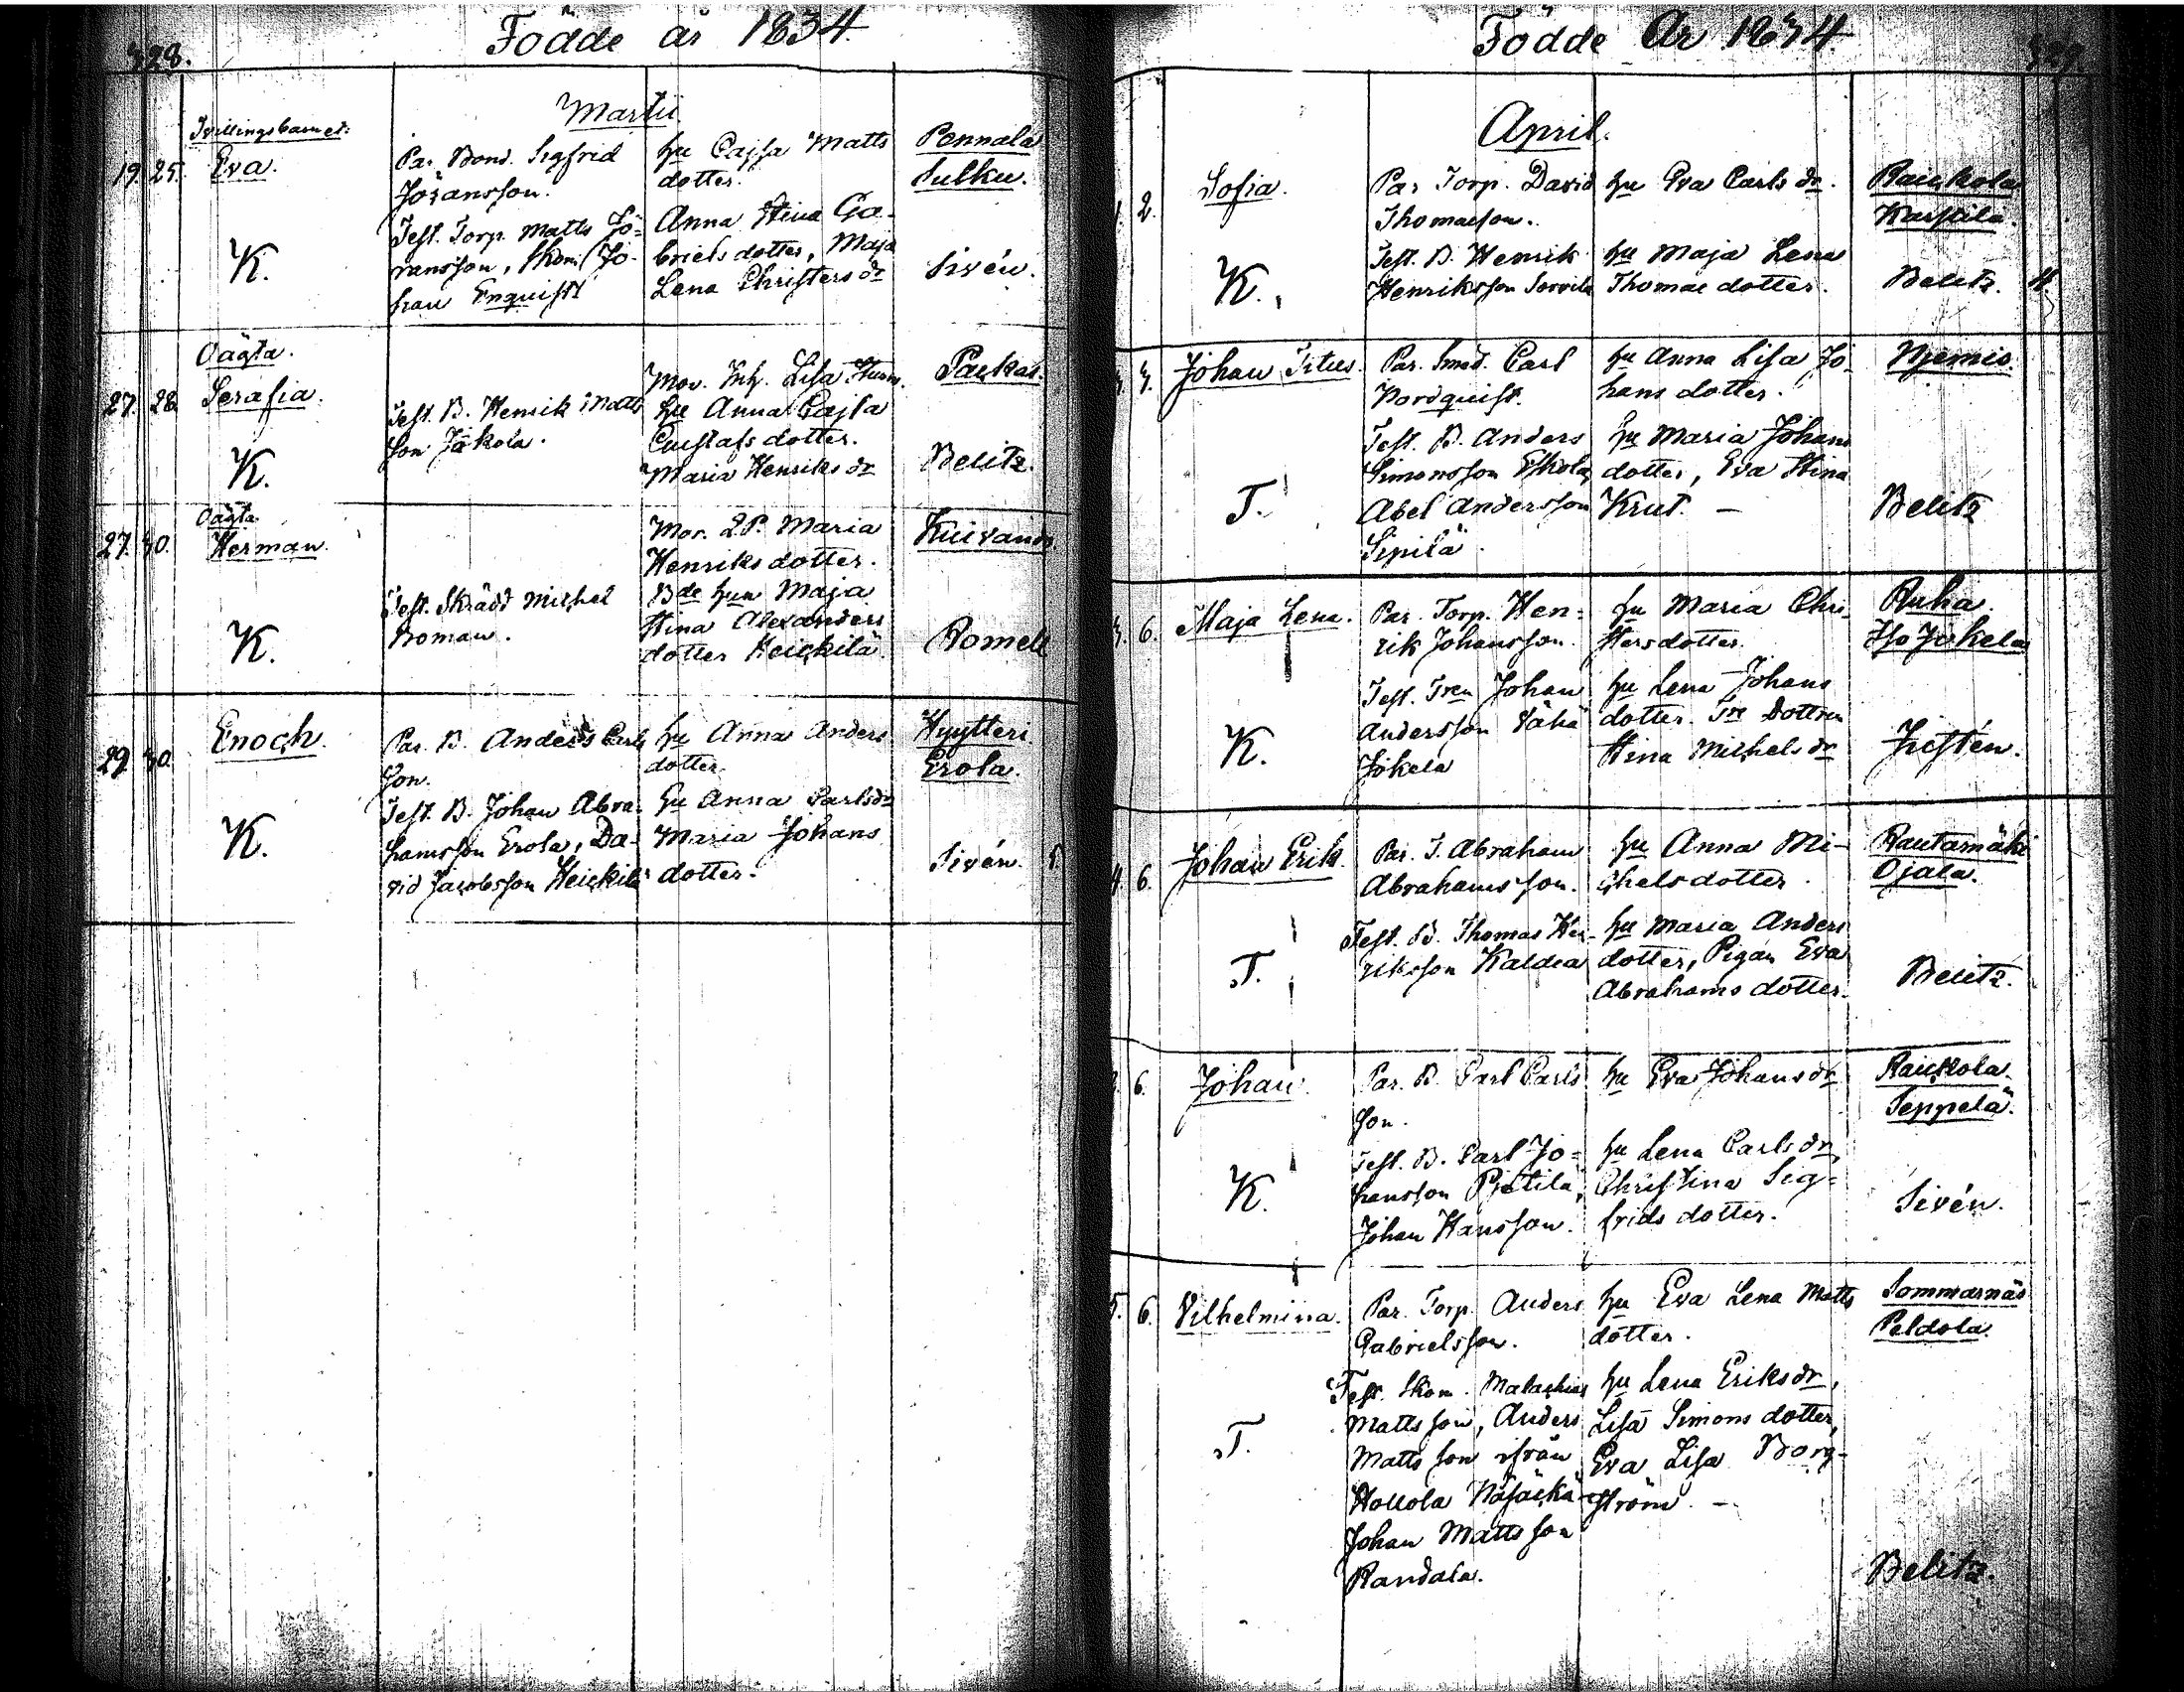 328.
Födde år 1834.
Martii
Tvillingsbarnet:
19. 25. Eva.
K.
Par. Bond. Sigfrid
Jöransson.
Test. Torp. Matts Jö=
ransson, Skom. Jo-
han Enquist
hu Cajsa Matts
dotter.
Anna Stina Ga-
briels dotter, Maja
Lena Christers dr
Pennala
Sulku.
Sivén.
Oägta.
27. 28. Serafia.
K.
Test. B. Henrik Matts
son Jäkola.
Mor. Inh. Lisa Sturm.
hu Anna Cajsa
Gustafs dotter.
Maria Henriks dr
Paukas.
Belitz.
Oägta
27. 30. Herman.
K.
Test. Skrädd Michel
Boman.
Mor. Maria
Henriks dotter.
Bde hun Maja
Stina Alexanders
dotter Heickilä.
Kuivando.
Pomell
29. 30. Enoch.
K.
Par. B. Anders Carls
son.
Test. B. Johan Abra-
hamsson Erola, Da-
vid Jacobsson Heickilä
hu Anna Anders
dotter.
hu Anna Carlsdr
Maria Johans
dotter.
Hyytteri
Erola.
Sivén. 5.
Födde År 1834
329.
April.
1. 2. Sofia.
K.
Par Torp. David
Thomasson.
Test. B. Henrik
Henriksson Sorvila
hu Eva Carls dr.
hu Maja Lena
Thomae dotter.
Raickola
Karstila.
Belitz. 4.
3. 3. Johan Titus.
T.
Par. Smed. Carl
Nordquist.
Test. B. Anders
Simonsson Eskola,
Abel Andersson
Sipilä.
hu Anna Lisa Jo
hans dotter.
hu Maria Johans
dotter, Eva Stina
Krut. —
Njemis.
Belitz
3. 6. Maja Lena.
K.
Par. Torp. Hen=
rik Johansson.
Test. Johan
Andersson Vähä
Jokela
hu Maria Chri
stersdotter.
hu Lena Johans
dotter. Dottren
Stina Michels dr
Ruha.
Iso Jokela
Justén.
4. 6. Johan Erik.
T.
Par. T. Abraham
Abrahamsson.
Test. Thomas Hen-
riksson Kaldea
hu Anna Mi-
chels dotter.
hu Maria Anders
dotter, Pigan Eva
Abrahams dotter.
Rautamäki
Ojala.
Belitz.
6. Johan.
K.
Par. B. Carl Carls
son.
Test. B. Carl Jo=
hansson Pietilä,
Johan Hansson.
hu Eva Johans dr
hu Lena Carls dr,
Christina Sig=
frids dotter.
Raickola.
Seppelä.
Sivén.
5. 6. Vilhelmina.
T.
Par. Torp. Anders
Gabrielsson.
Test. Skom. Malachias
Mattsson, Anders
Mattsson ifrån
Hollola
Johan Mattsson
Randala.
hu Eva Lena Matts
dotter.
hu Lena Eriks dr,
Lisa Simons dotter,
Eva Lisa Borg-
ström. —
Sommarnäs
Peldola.
Belitz.